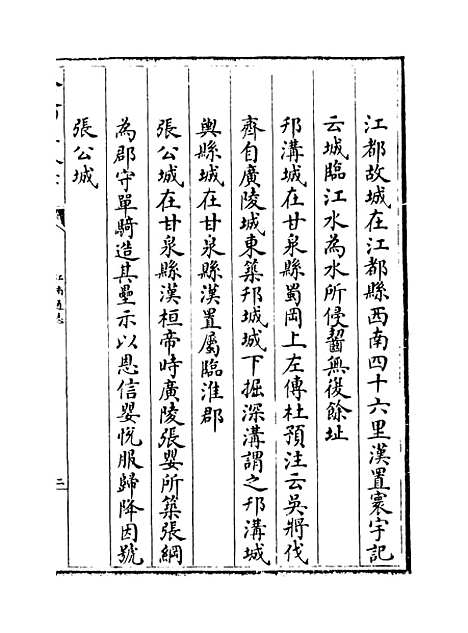 江都故城在江都縣西南四十六里漢置寰宇記
云城臨江水為水所侵齧無復餘址
邗溝城在甘泉縣蜀岡上左傳杜預注云吳將伐
齊自廣陵城東築邗城城下掘深溝謂之邗溝城
輿縣城在甘泉縣漢置屬臨淮郡
張公城在甘泉縣漢桓帝時廣陵張嬰所築張綱
為郡守單騎造其壘示以恩信嬰悅服歸降因號
張公城
江南通志
三